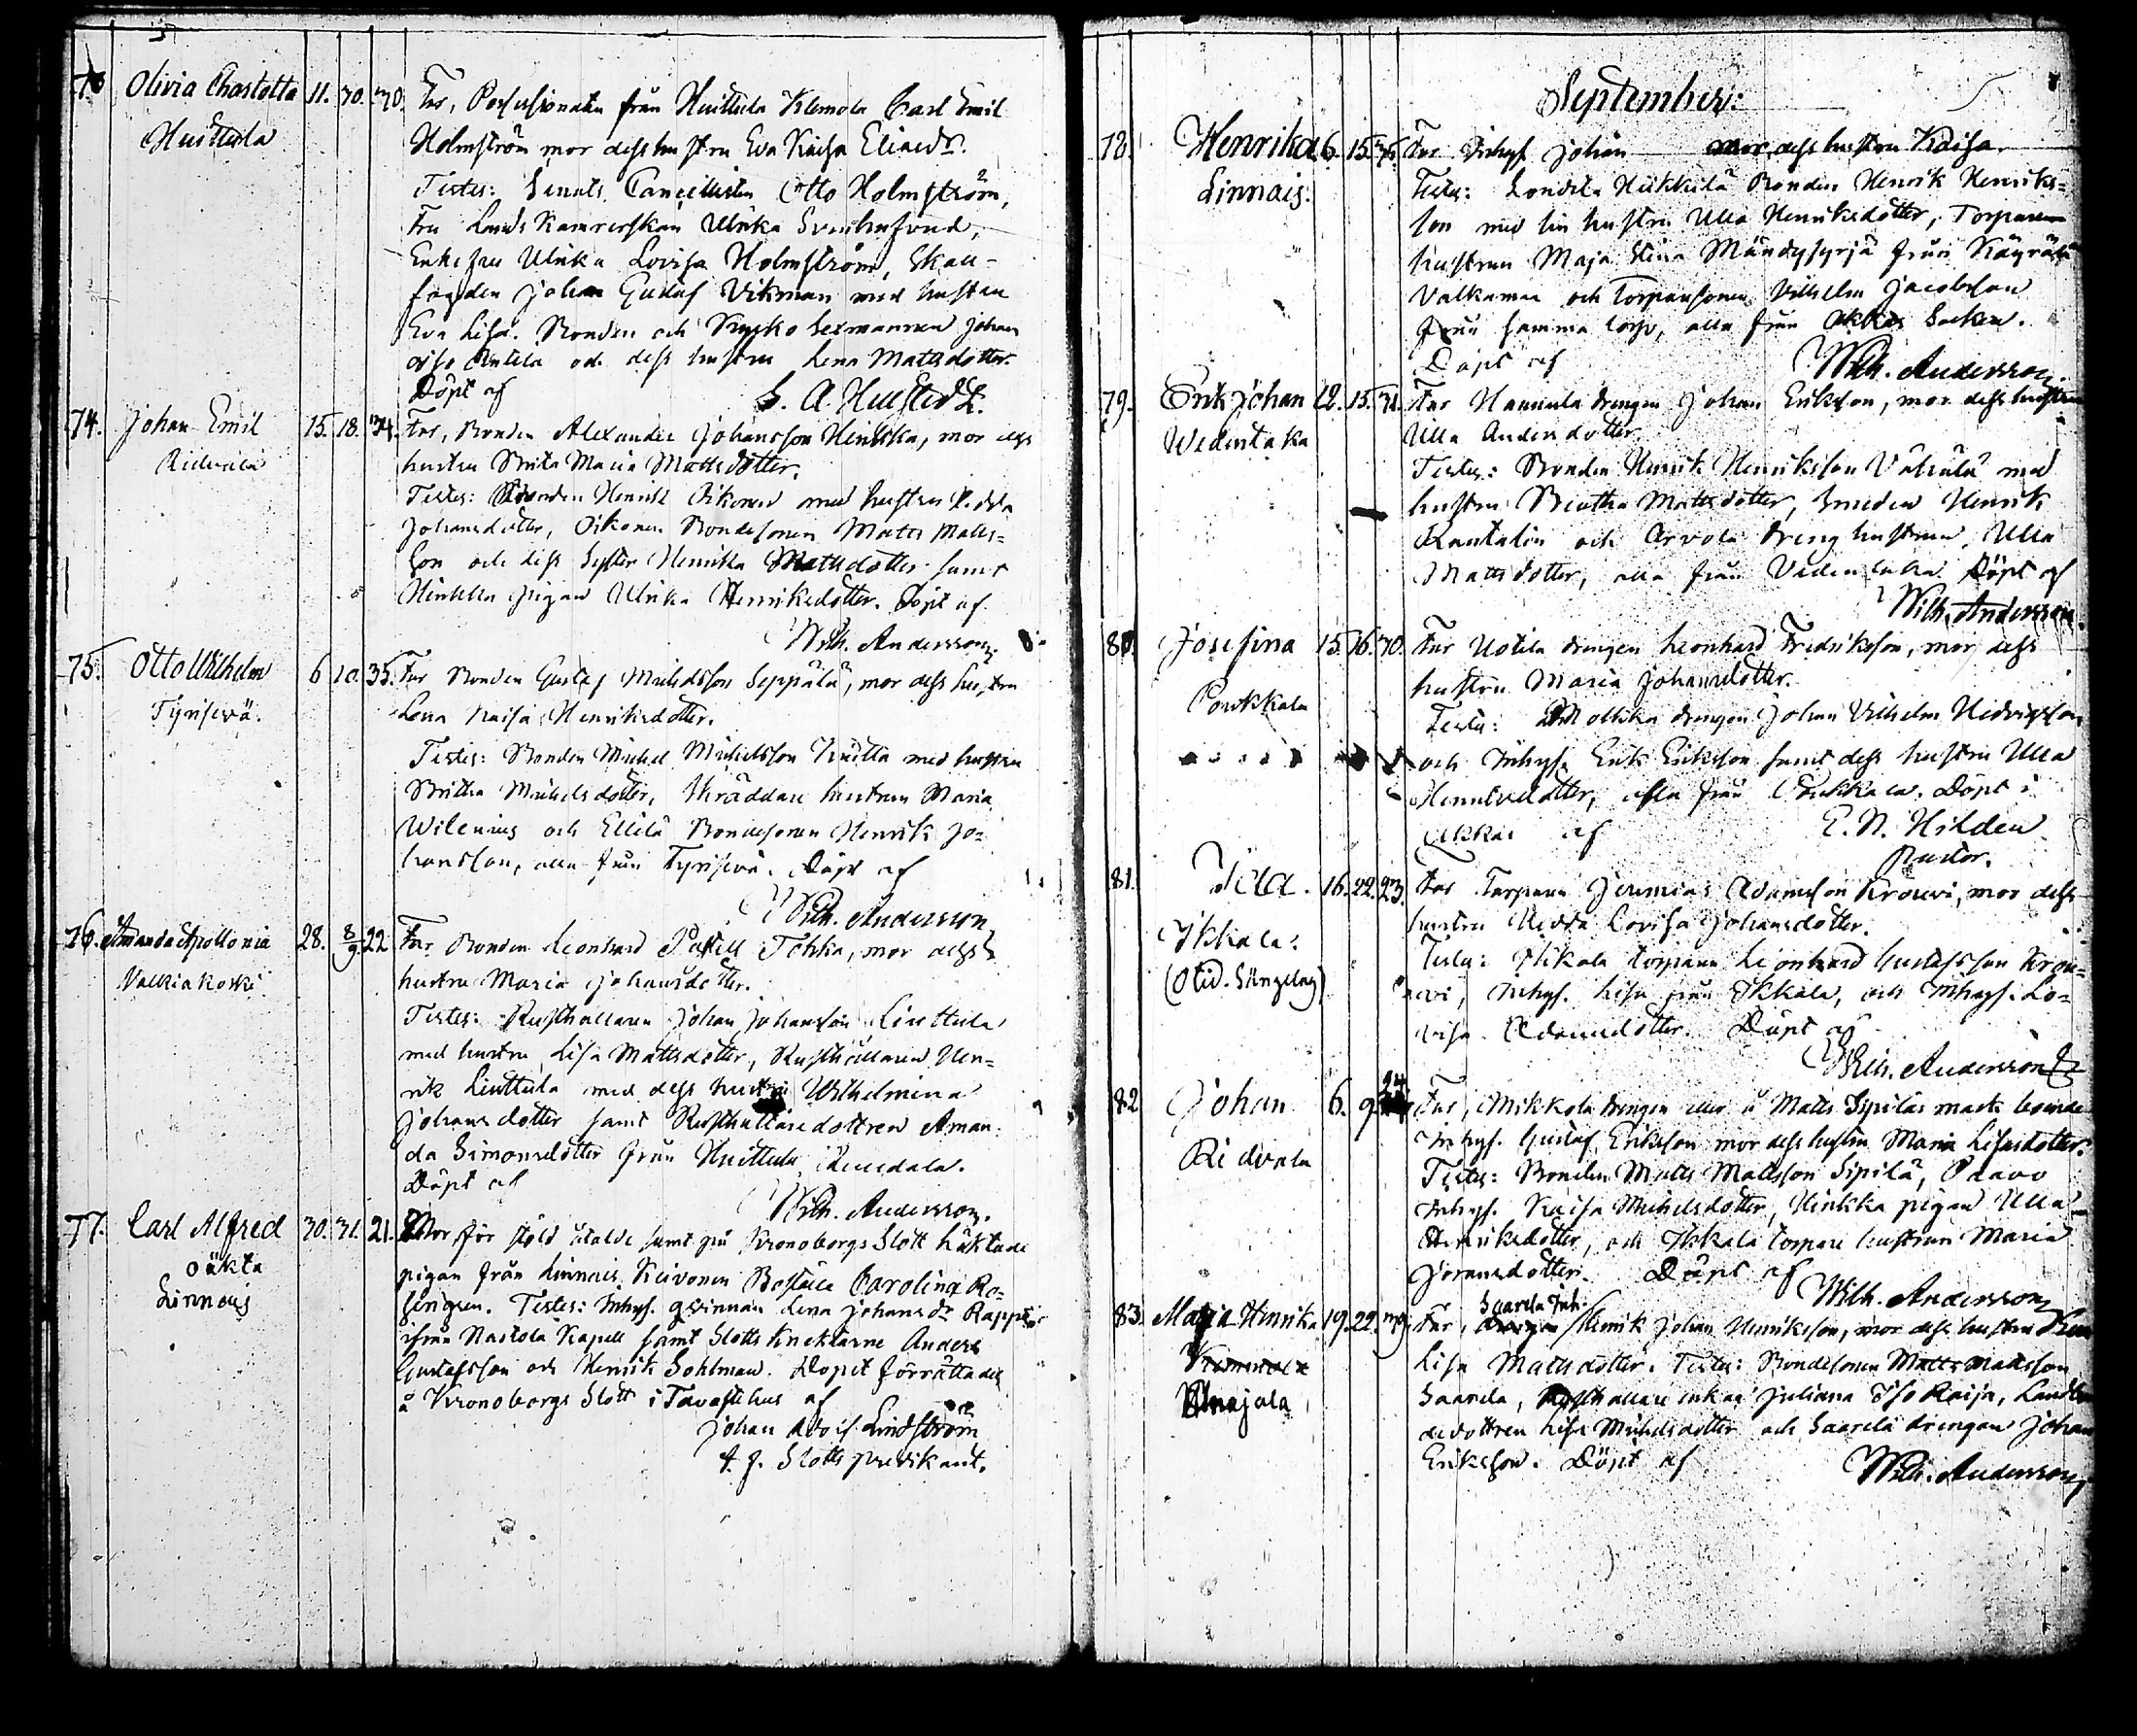 Olivia Charlotta 11. 30. 30. Far, Possessionaten från Huittula Klemola Carl Emil
Huittula Holmström mor dess hustru Eva Kaisa Eliaedr.
Testes: Senats Cancellisten Otto Holmström,
Fru Lands Kamrerskan Ulrika
Enkefru Ulrika Lovisa Holmström,
fogden Johan Gustaf Vikman med hustru
Eva Lisa. Bonden och Kyrko Sexmannen Johan
Iso Antila och dess hustru Lena Mattsdotter.
Döpt af
74. Johan Emil 15. 18. 34. Far, Bonden Alexander Johansson Hinkka, mor dess
Ridvala hustru Brita Maria Mattsdotter.
Testes: Bonden Henrik Oikonen med hustru Hedda
Johansdotter, Oikonen Bondesonen Matts Matts=
son och dess Syster Henrika Mattsdotter samt
Hinkka pigan Ulrika Henriksdotter. Döpt af
Wilh. Andersson.
75. Otto Wilhelm 6 10. 35. Far Bonden Gustaf Michelsson Seppälä, mor dess hustru
Tyrisevä. Lena Kaisa Henriksdotter.
Testes: Bonden Michel Michelsson med hustru
Britha Michelsdotter, Skräddare hustrun Maria
Wilenius och Ellilä Bondesonen Henrik Jo=
hansson, alla från Tyrisevä. Döpt af
Wilh. Andersson
76. Amanda Apollonia 28. 8/9. 22 Far Bonden Leonhard Tohka, mor dess
Valkiakoski hustru Maria Johansdotter.
Testes: Rusthållaren Johan Johansson Liuttula
med hustru Lisa Mattsdotter, Rusthållaren Hen=
rik Liuttula med dess hustru Wilhelmina
Johansdotter samt Rusthållaredottren Aman=
da Simonsdotter från Huittula
Döpt af
Wilh. Andersson.
77. Carl Alfred 30. 31. 21. Mor, för stöld åtalde samt på Kronoborgs Slott häktade
oäkta pigan från Linnais Keivonen Boställe Carolina Ro=
Linnais sengren. Testes: Inhys. qvinnan Lena Johansdr
ifrån Nastola Kapell samt Slotts Knektarne Anders
Gustafsson och Henrik Sohlman. Dopet förrättades
å Kronoborgs Slott i Tavastehus af
Johan Adolf Lindström
t. f. Slotts predikant.
September:
78. Henrika 6. 15. Far Inhys Johan mor, dess hustru Kaisa.
Linnais. Testes: Heikkilä Bonden Henrik Henriks=
son med sin hustru Ulla Henriksdotter, Torpare
hustrun Maja Stina från
Valkama och Torparesonen Vilhelm Jacobsson
från samma torp, alla från Akkas Socken.
Döpt af Wilh. Andersson.
79. Erik Johan 12. 15. 31. Far Hannula drengen Johan Eriksson, mor dess hustru
Wedentaka Ulla Andersdotter.
Testes: Bonden Henrik Henriksson med
hustru Beatha Mattsdotter, Smeden Henrik
Rantalin och Arvola dreng hustrun Ulla
Mattsdotter, alla från Vedentaka. Döpt af
Wilh. Andersson.
80. Josefina 15. 16. 30. Far Uotila drengen Leonhard Fredriksson, mor dess
Pourkkala hustru Maria Johansdotter.
Testes: drengen Johan Vilhelm Hedvigsson
och Inhys. Erik Eriksson samt dess hustru Ulla
Henriksdotter, alla från Pourkkala. Döpt i
Akkas af E. N. Hilden
Pastor.
81. Ida. 16. 22. 23. Far Torparen Jeremias Adamsson Krouvi, mor dess
Ikkala. hustru Hedda Lovisa Johansdotter.
Testes: torparen Leonhard Gustafsson Krou=
vi, Inhys. Lisa från Ikkala, och Inhys. Lo=
visa Adamsdotter. Döpt af
Wilh. Andersson
82 Johan 6. 9 24. Far, Mikkola drengen eller å Matts Sipiläs mark boende
Ridvala Inhys. Gustaf Eriksson mor dess hustru Maria Lisasdotter.
Testes: Bonden Matts Mattsson Sipilä, Paavo
Inhys. Kaisa Michelsdotter, Hinkka pigan Ulla
Henriksdotter, och Ikkala torpare hustrun Maria
Göransdotter. Döpt af
Wilh. Andersson
83. Maria Henrika 19. 22. 39. Far, Saarela Inh. Henrik Johan Henriksson, mor dess hustru
Annajala Lisa Mattsdotter. Testes: Bondesonen Matts Mattsson
Saarela, Rusthållare enkan Juliana Iso Raija,
dottren Lisa Michelsdotter och Saarela drengen Johan
Eriksson. Döpt af Wilh. Andersson